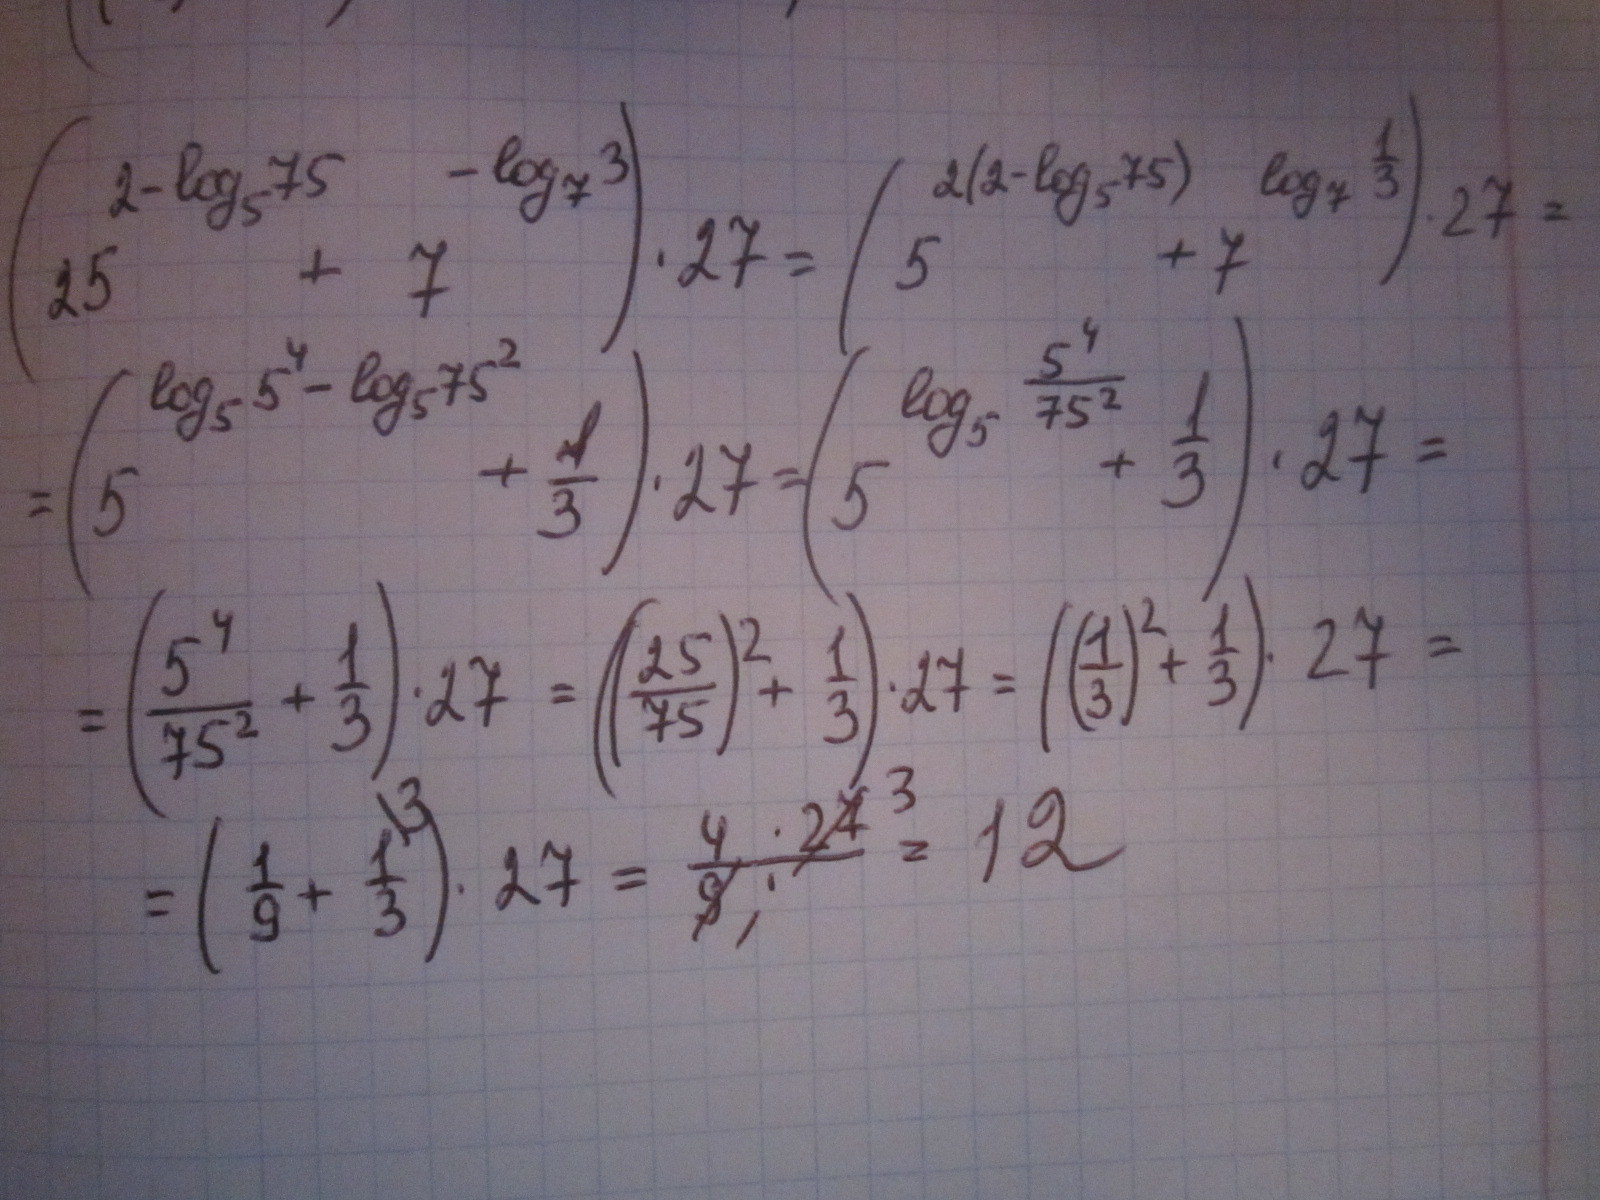 (25^{2-log_5 75} + 7^{-log_7 3}) · 27 = (5^{2(2-log_5 75)} + 7^{log_7 \frac{1}{3}}) · 27 =
= (5^{log_5 5^4 - log_5 75^2} + \frac{1}{3}) · 27 = (5^{log_5 \frac{5^4}{75^2}} + \frac{1}{3}) · 27 =
= (\frac{5^4}{75^2} + \frac{1}{3}) · 27 = ((\frac{25}{75})^2 + \frac{1}{3}) · 27 = ((\frac{1}{3})^2 + \frac{1}{3}) · 27 =
= (\frac{1}{9} + \frac{1}{3}^{\3}) · 27 = \frac{4 · 27^3}{9_1} = 12